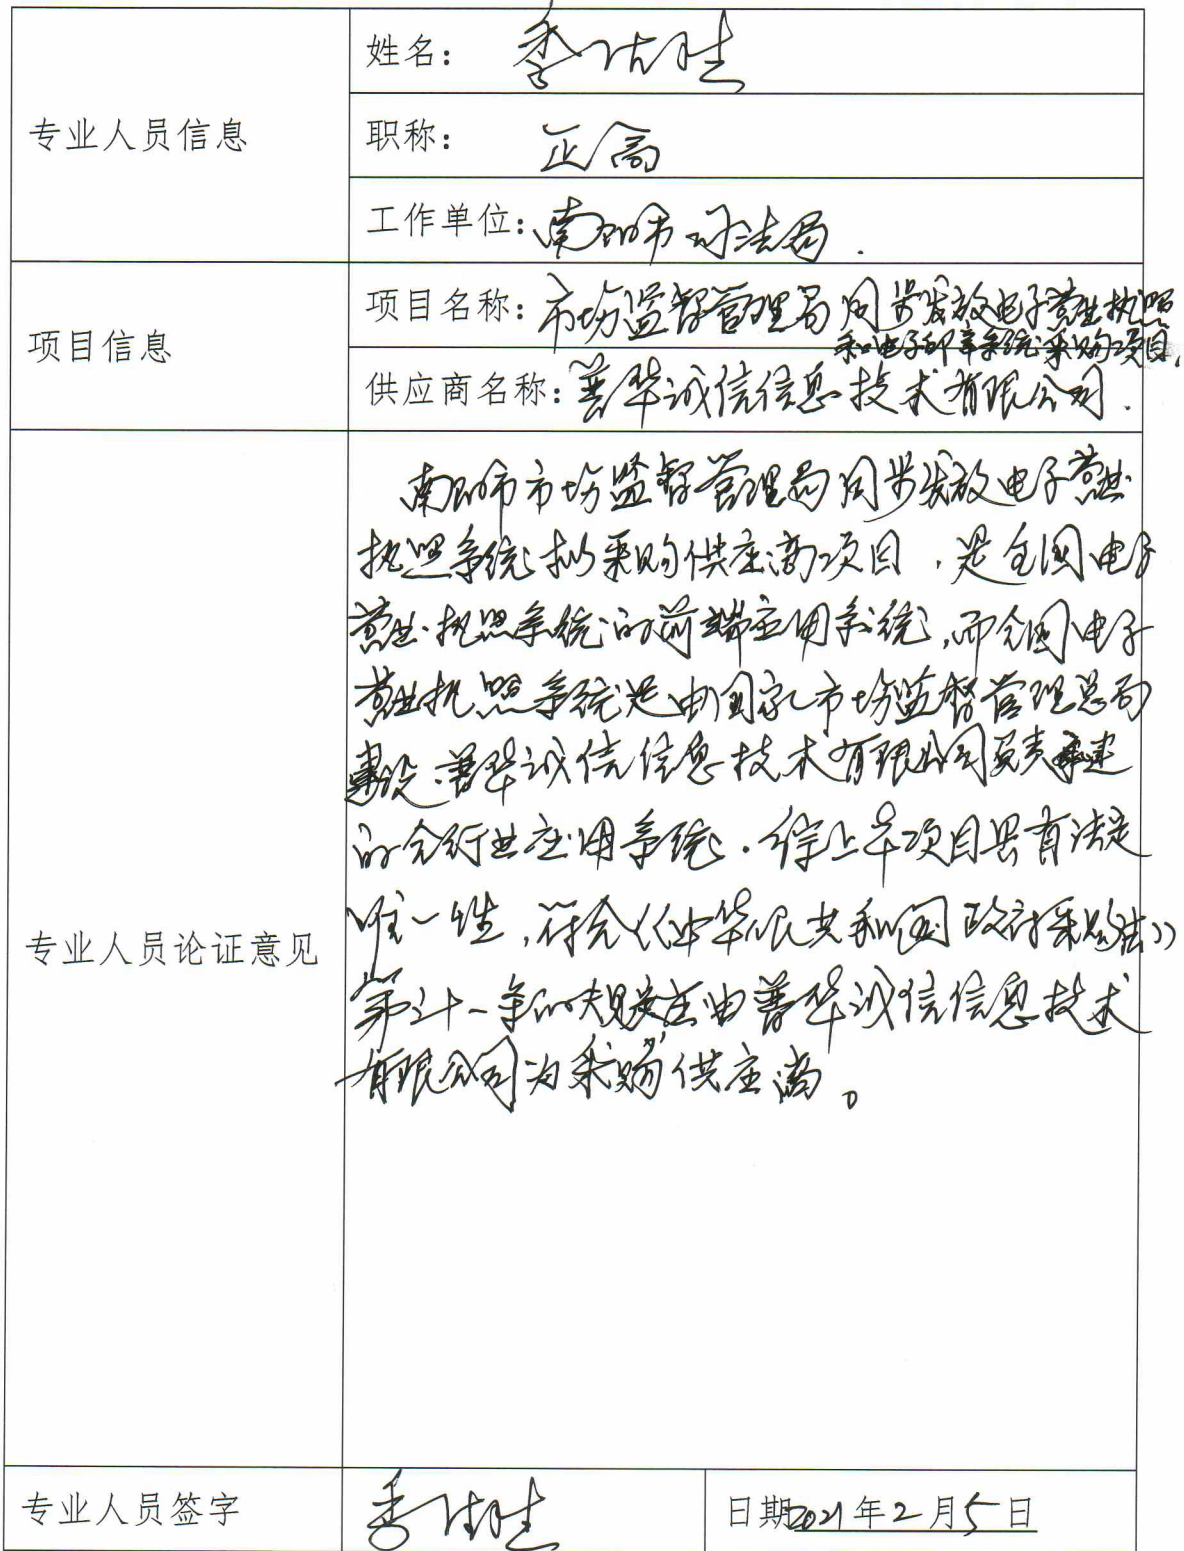 专业人员信息
姓名：季
职称：正高
工作单位：南阳市司法局.
项目信息
项目名称：市场监督管理局同步发放电子营业执照
和电子印章系统采购项目.
供应商名称：普华诚信信息技术有限公司.
专业人员论证意见
南阳市市场监督管理局同步发放电子营业
执照系统拟采购供应商项目，是全国电子
营业执照系统的前端应用系统，而全国电子
营业执照系统是由国家市场监督管理总局
建设.普华诚信信息技术有限公司负责承建
的全行业应用系统.综上本项目具有法定
唯一性，符合《中华人民共和国政府采购法》
第三十一条的规定应由普华诚信信息技术
有限公司为采购供应商。
专业人员签字
季
日期2021年2月5日